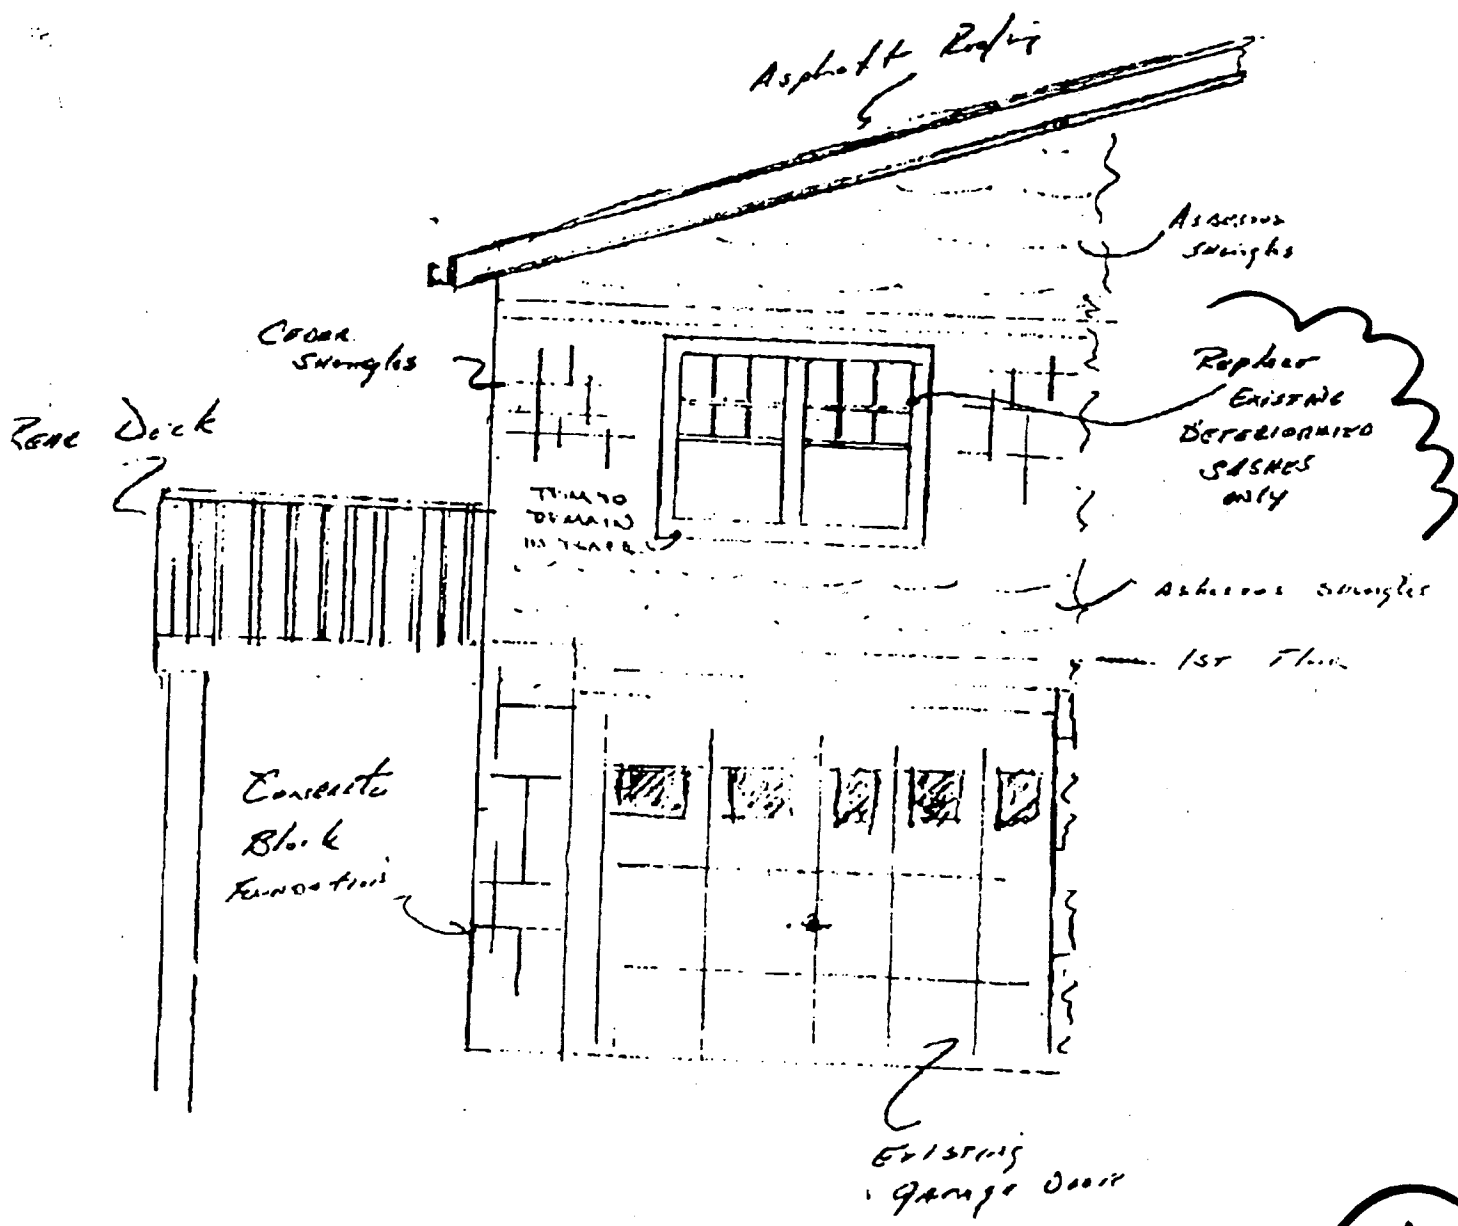 Asphalt Roofing
Asbestos
Shingles
Cedar
Shingles
Replace
Existing
Deteriorated
Sashes
only
Rear Deck
Trim to
remain
in place
Asbestos Shingles
1st Floor
Concrete
Block
Foundation
Existing
Garage Door